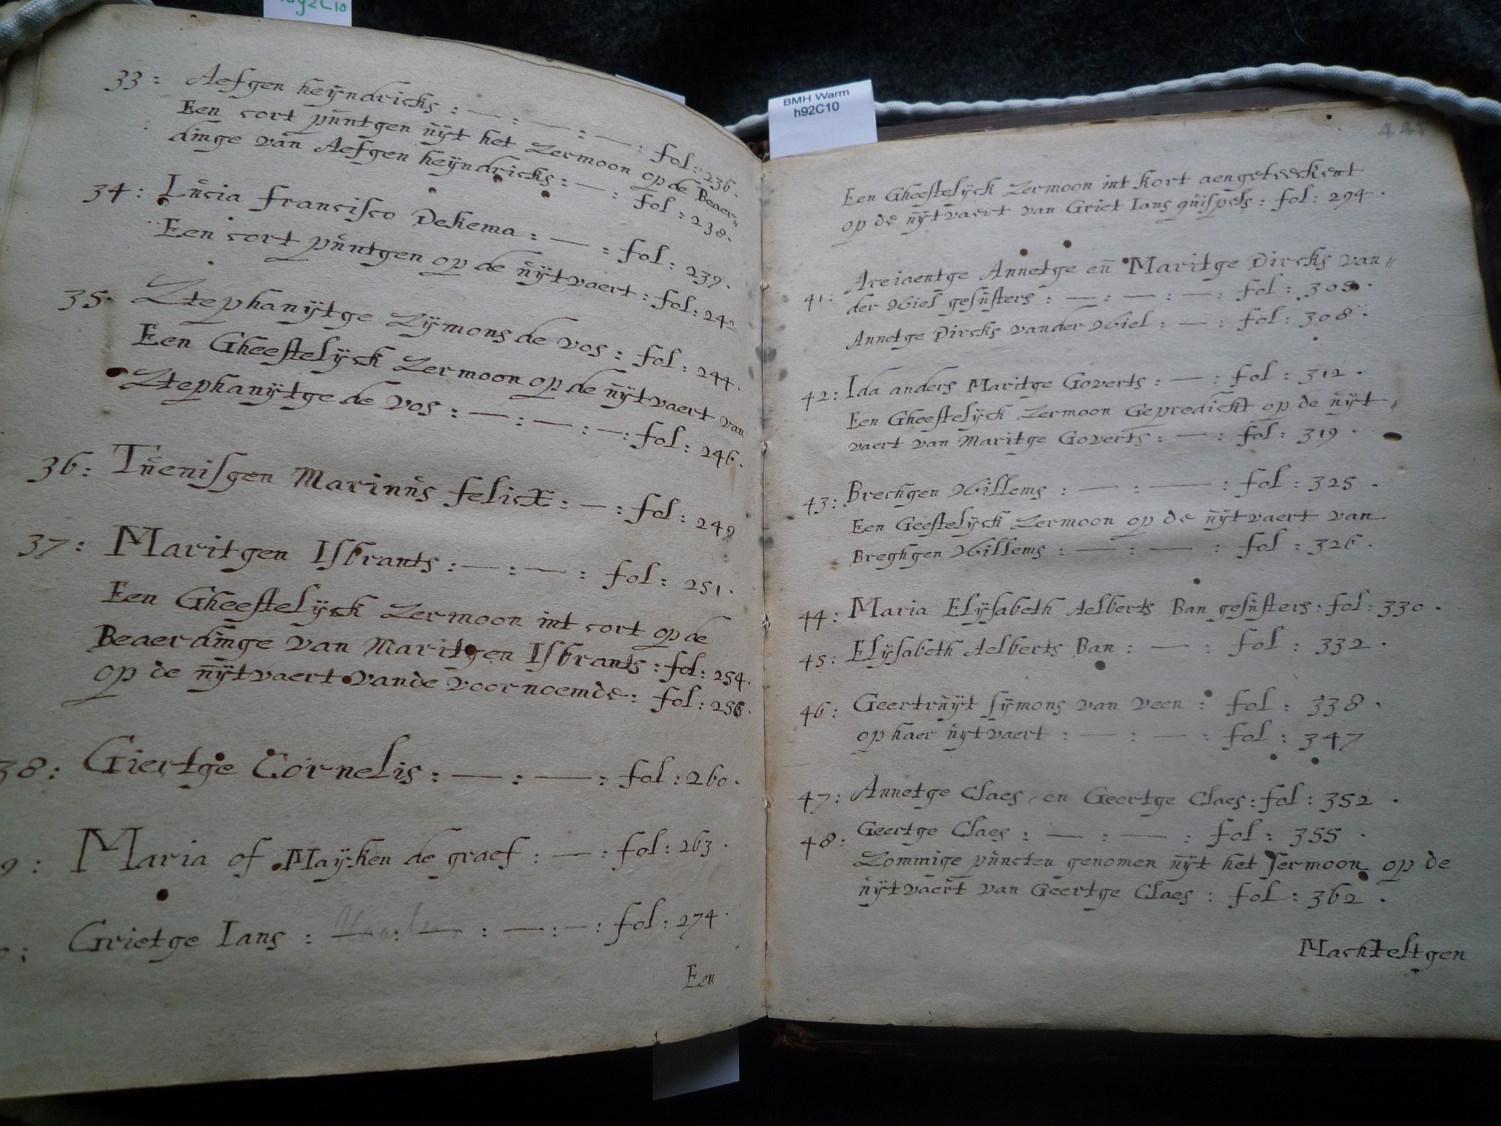 33: Aefgen heÿndricks : — : — : — : fol: 236.
Een cort pŭntgen ŭÿt het Zermoon op de Beaer-
dinge van Aefgen heÿndricks: — : fol : 238.
34: Lŭcia francisco Dekema : — : fol: 239.
Een cort pŭntgen op de ŭÿtvaert: fol: 242
35: Stephanÿtge Zÿmons de vos : fol: 244.
Een Gheestelÿck Zermoon op de ŭÿtvaert van
Stephanÿtge de vos : — : — : — : fol: 246.
36: Tŭenisgen Marinŭs felicx: — : fol: 249
37: Maritgen Isbrants : — : — : fol: 251.
Een Gheestelÿck Zermoon int cort op de
Beaerdinge van Maritgen Isbrants : fol: 254.
op de ŭÿtvaert vande voornoemde: fol: 258.
38: Giertge Cornelis : — : — : fol: 260.
9: Maria of Maÿken de graef : — : fol: 263.
: Grietge Ians : — : — : — : — : fol: 274.
Een
BMH Warm
h92C10
441
Een Gheestelÿck Zermoon int kort aengeteeckent
op de ŭÿtvaert van Griet Ians qŭispels: fol: 294.
41: Areiaentge Annetge en Maritge Dircks van-
der Wiel gesŭsters : — : — : — : fol: 303.
Annetge Dircks vander Wiel : — : fol: 308.
42: Ida anders Maritge Goverts : — : fol : 312.
Een Gheestelÿck Zermoon Gepredickt op de ŭÿt-
vaert van Maritge Goverts : — : fol: 319.
43: Brechgen Willems : — : — : fol : 325.
Een Geestelÿck Zermoon op de ŭÿtvaert van
Breghgen Willems : — : — : fol : 326.
44: Maria Elÿsabeth Aelberts Ban gesŭsters: fol: 330.
45: Elÿsabeth Aelberts Ban : — : fol : 332.
46: Geertrŭÿt sÿmons van veen : fol : 338.
op haer ŭÿtvaert : — : — : fol : 347
47: Annetge Claes en Geertge Claes: fol: 352.
48: Geertge Claes : — : — : fol : 355.
Zommige pŭncten genomen ŭÿt het Sermoon op de
ŭÿtvaert van Geertge Claes : fol: 362.
Machteltgen